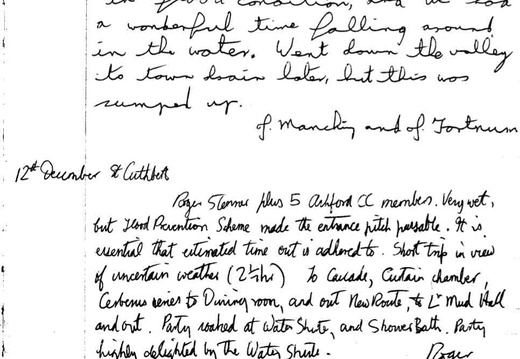 in good condition, and we had
a wonderful time falling around
in the water. Went down the valley
to town drain later, but this was
sumped up.
J. Manchip and J. Fortnum
12th December St Cuthberts
Roger Stenner plus 5 Ashford CC members. Very wet,
but Flood Prevention Scheme made the entrance pitch passable. It is
essential that estimated time out is adhered to. Short trip in view
of uncertain weather (2½hr) to Cascade, Curtain chamber,
Cerberus series to Dining room, and out New Route, to Lr Mud Hall
and out. Party soaked at Water Shute, and Shower Bath. Party
highly delighted by the Water Shute.
Roger